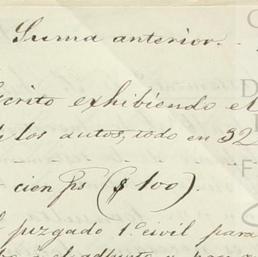 Suma anterior.
scrito exhibiendo el
los autos, todo en 32
cien ps ($100).
juzgado 1º civil para